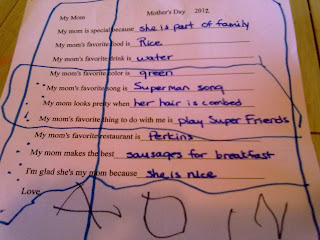 My Mom Mother's Day 2012
My mom is special because she is part of family
My mom's favorite food is Rice
My mom's favorite drink is water
My mom's favorite color is green
My mom's favorite song is Superman song
My mom looks pretty when her hair is combed
My mom's favorite thing to do with me is play Super Friends
My mom's favorite restaurant is Perkins
My mom makes the best sausages for breakfast
I'm glad she's my mom because she is nice
Love